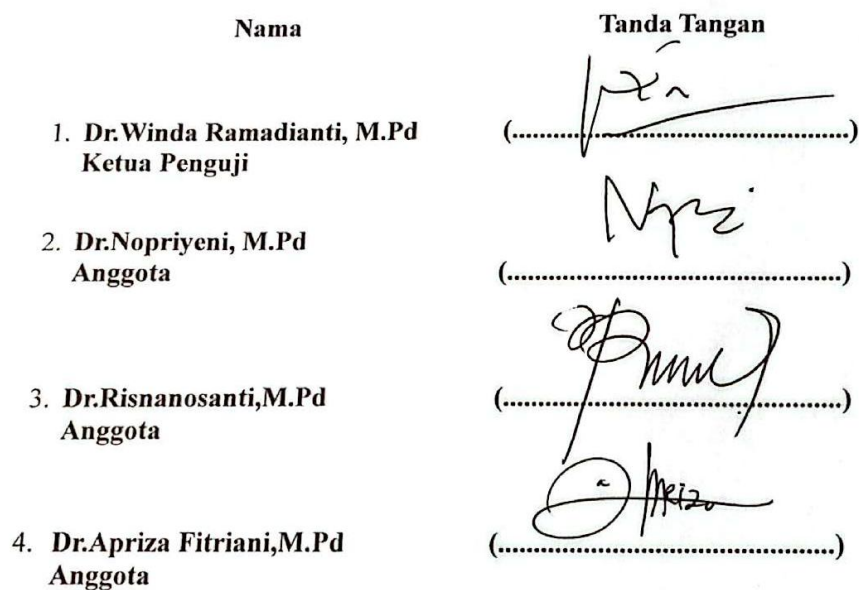 Nama Tanda Tangan
1. Dr.Winda Ramadianti, M.Pd (............................................................)
Ketua Penguji
2. Dr.Nopriyeni, M.Pd
Anggota (............................................................)
3. Dr.Risnanosanti,M.Pd (............................................................)
Anggota
4. Dr.Apriza Fitriani,M.Pd (............................................................)
Anggota